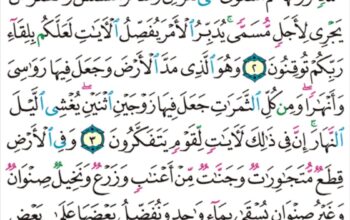 يَجْرِى لِأَجَلٍ مُّسَمًّى ۚ يُدَبِّرُ ٱلْأَمْرَ يُفَصِّلُ ٱلْـَٔايَـٰتِ لَعَلَّكُم بِلِقَآءِ
رَبِّكُمْ تُوقِنُونَ ٢ وَهُوَ ٱلَّذِى مَدَّ ٱلْأَرْضَ وَجَعَلَ فِيهَا رَوَٰسِىَ
وَأَنْهَـٰرًا ۖ وَمِن كُلِّ ٱلثَّمَرَٰتِ جَعَلَ فِيهَا زَوْجَيْنِ ٱثْنَيْنِ ۖ يُغْشِى ٱلَّيْلَ
ٱلنَّهَارَ ۚ إِنَّ فِى ذَٰلِكَ لَـَٔايَـٰتٍ لِّقَوْمٍ يَتَفَكَّرُونَ ٣ وَفِى ٱلْأَرْضِ
قِطَعٌ مُّتَجَـٰوِرَٰتٌ وَجَنَّـٰتٌ مِّنْ أَعْنَـٰبٍ وَزَرْعٌ وَنَخِيلٌ صِنْوَانٌ
وَغَيْرُ صِنْوَانٍ يُسْقَىٰ بِمَآءٍ وَٰحِدٍ وَنُفَضِّلُ بَعْضَهَا عَلَىٰ بَعْضٍ